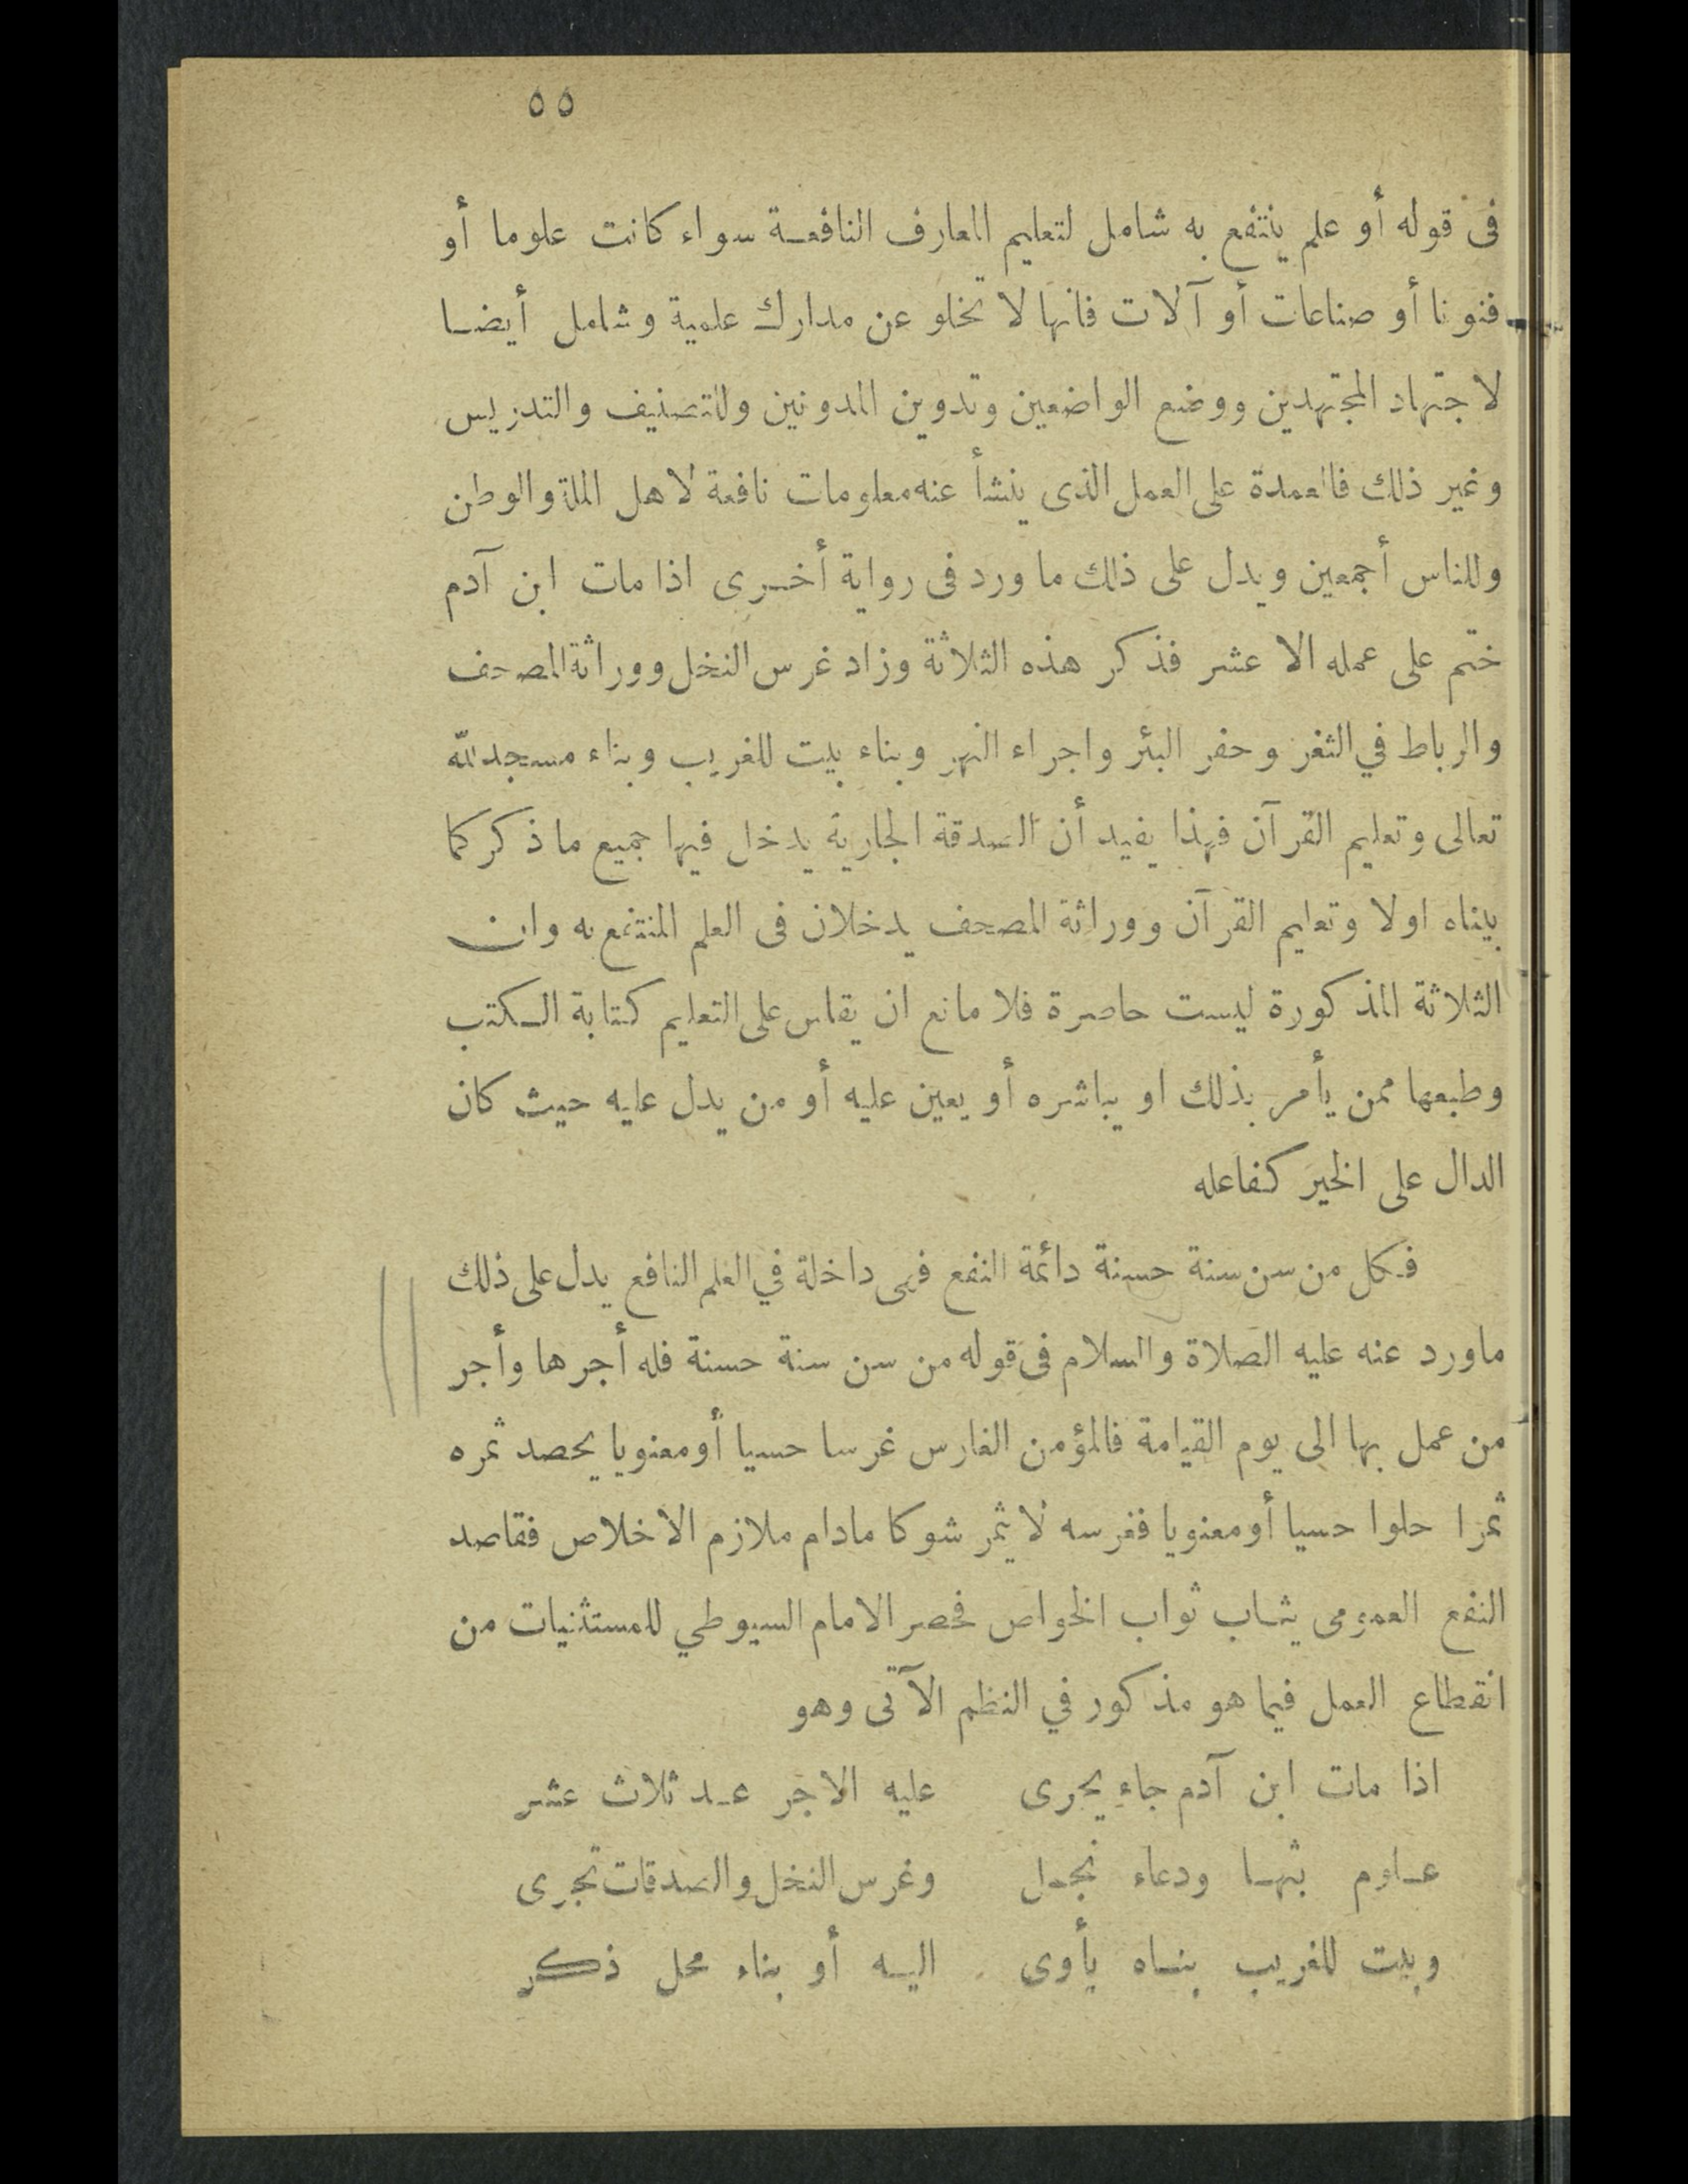 ٥٥
فى قوله أو علم ينتفع به شامل لتعليم المعارف النافعة سواء كانت علوما أو
فنونا أو صناعات أو آلات فانها لا تخلو عن مدارك علمية وشامل أيضا
لاجتهاد المجتهدين ووضع الواضعين وتدوين المدونين وللتصنيف والتدريس
وغير ذلك فالعمدة على العمل الذى ينشأ عنه معلومات نافعة لاهل الملة والوطن
وللناس أجمعين ويدل على ذلك ما ورد فى رواية أخرى اذا مات ابن آدم
ختم على عمله الا عشر فذكر هذه الثلاثة وزاد غرس النخل ووراثة المصحف
والرباط في الثغر وحفر البئر واجراء النهر وبناء بيت للغريب وبناء مسجد لله
تعالى وتعليم القرآن فهذا يفيد أن الصدقة الجارية يدخل فيها جميع ما ذكر كما
بيناه اولا وتعليم القرآن ووراثة المصحف يدخلان فى العلم المنتفع به وان
الثلاثة المذكورة ليست حاصرة فلا مانع ان يقاس على التعليم كتابة الكتب
وطبعها ممن يأمر بذلك او يباشره أو يعين عليه أو من يدل عليه حيث كان
الدال على الخير كفاعله
فكل من سن سنة حسنة دائمة النفع فهى داخلة في العلم النافع يدل على ذلك
ماورد عنه عليه الصلاة والسلام فى قوله من سن سنة حسنة فله أجرها وأجر
من عمل بها الى يوم القيامة فالمؤمن الغارس غرسا حسيا أو معنويا يحصد ثمره
ثمرا حلوا حسيا أو معنويا فغرسه لا يثمر شوكا مادام ملازم الاخلاص فقاصد
النفع العمومى يثاب ثواب الخواص فحصر الامام السيوطي للمستثنيات من
انقطاع العمل فيما هو مذكور في النظم الآتى وهو
اذا مات ابن آدم جاء يجرى عليه الاجر عد ثلاث عشر
علوم بثها ودعاء نجل وغرس النخل والصدقات تجرى
وبيت للغريب بناه يأوى اليه أو بناء محل ذكر